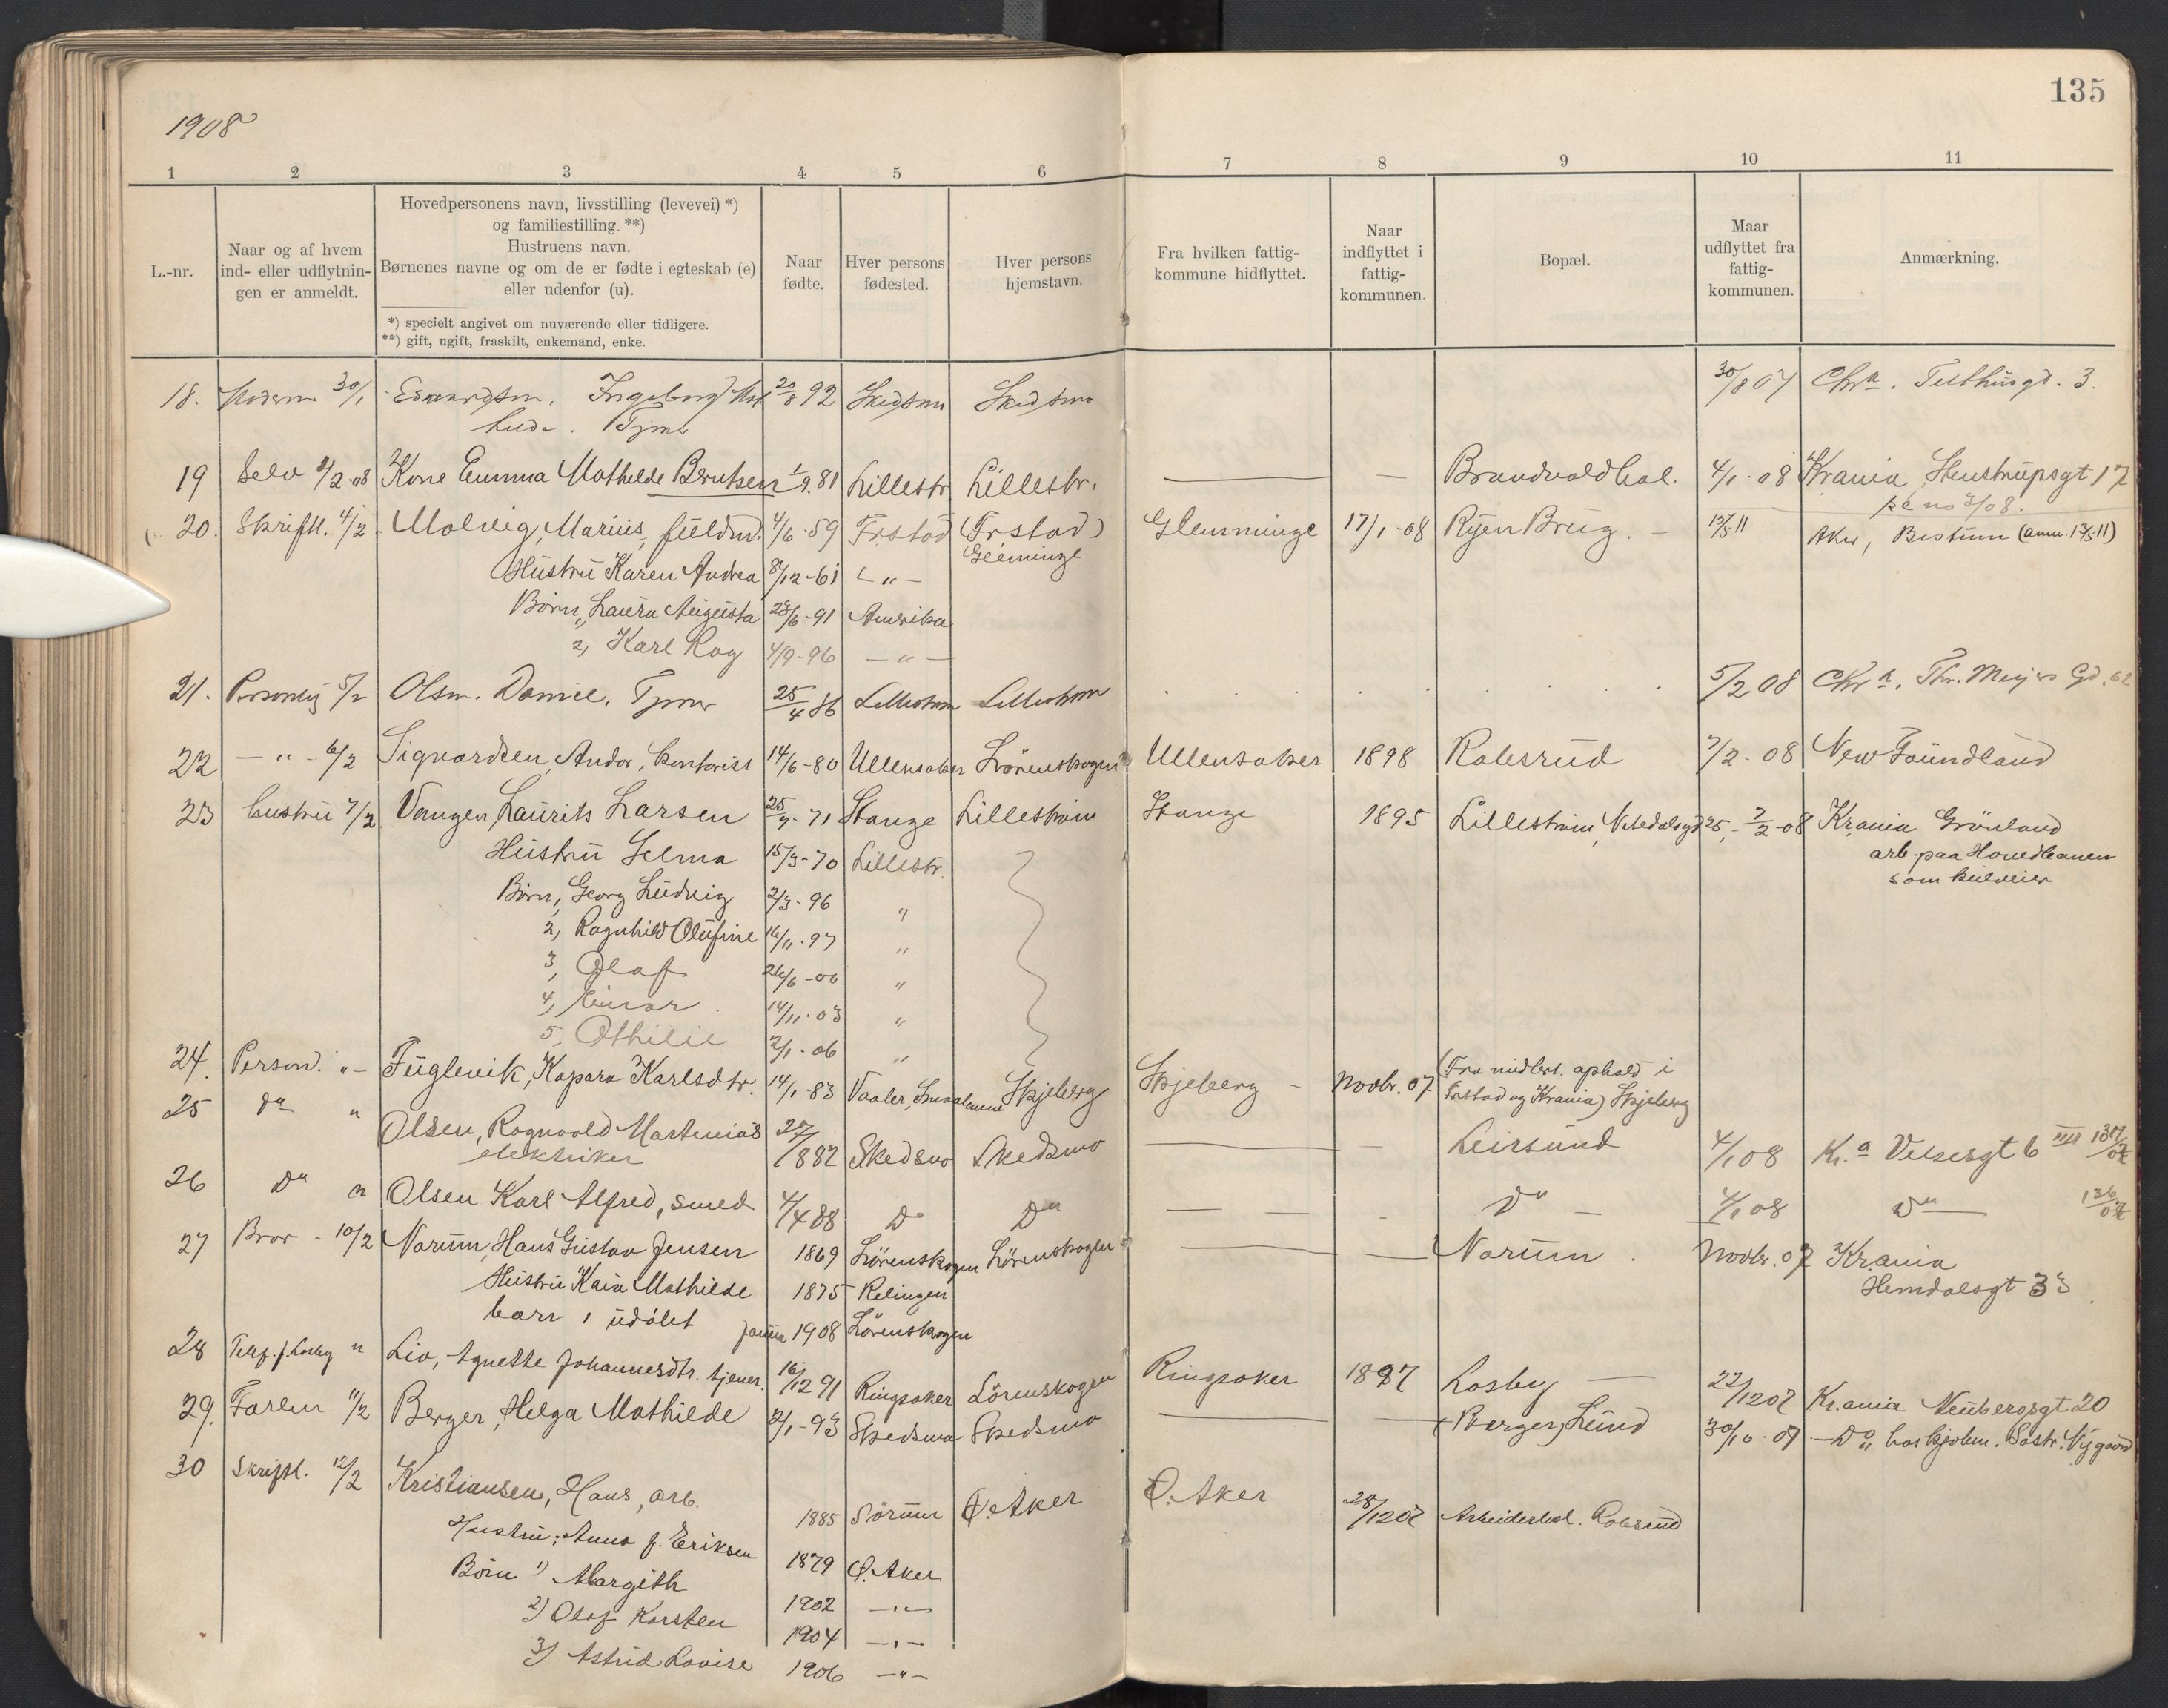 135
1908
1 2 3 4 5 6 7 8 9 10 11
L.-nr.
Naar og af hvem
ind- eller udflytnin-
gen er anmeldt.
Hovedpersonens navn, livsstilling (levevei) *)
og familiestilling. **)
Hustruens navn.
Børnenes navne og om de er fødte i egteskab (e)
eller udenfor (u).
*) specielt angivet om nuværende eller tidligere.
**) gift, ugift, fraskilt, enkemand, enke.
Naar
fødte.
Hver persons
fødested.
Hver persons
hjemstavn.
Fra hvilken fattig-
kommune hidflyttet.
Naar
indflyttet i
fattig-
kommunen.
Bopæl.
Maar
udflyttet fra
fattig-
kommunen.
Anmærkning.
18. Moderen 30/1 Edvardsen. Ingeborg 20/8 92 Skedsmo Skedsmo 30/8 07 Chra. Tugthusgd. 3.
19 Selv 4/2 08 Kone Emma Mathilde Berntsen 1/9. 81 Lillestr. Lillestr. — — Brandvoldhol. 4/1. 08 Krania Stenstrupsgt 17
20. Skriftl. 4/2 Molvig, Marius, fuldm. 4/6-59 Frstad (Frstad) Glemminge 17/1-08 Ryen Brug. — 17/5 11 Aker, Bestum (anm. 17/5-11)
Glemminge
Hustru Karen Andrea 8/12-61 — " —
Børn, Laura Augusta 28/6-91 Amerika
2, Karl Roy 4/9-96 — " —
21. Personlig 5/2 Olsen. Daniel. Tjener 25/4 86 Lillestrøm Lillestrøm 5/2 08 Chra. Thv. Meyers Gd. 62
22 — " — 6/2 Sigvardsen, Andor, kontorist 14/6-80 Ullensaker Lørenskogen Ullensaker 1898 Robsrud 7/2-08 New Foundland
23 hustru 7/2 Vangen, Laurits Larsen 25/9-71 Stange Lillestrøm Stange 1895 Lillestrøm, Nitedalsgd 25, — 7/2-08 Krania Grønland
arb. paa Hovedbanen
som
Hustru Gelma 15/3-70 Lillestr.
Børn, Georg Ludvig 2/3-96 "
2, Ragnhild Olufine 16/11-97 "
3, Olaf 26/6-00 "
4, Einar 14/11-03 "
5, Othilie 2/1-06 "
24. Person. " — Fuglevik, Kapara Karlsdtr. 14/1-83 Vaaler, Smaalenene Skjeberg Skjeberg — Novbr. 07 (Fra midlert. ophold i
Frstad og Krania) Skjeberg
25 Do " Olsen, Ragnvald Martenius 27/7 882 Skedsmo Skedsmo — — Leirsund 4/1 08 Kr.a Velsesgt 6 IIII
elektriker
26 Do " Olsen Karl Alfred, smed 4/4 88 Do Do — — — Do — 4/1 08 Do —
27 Bror - 10/2 Narum, Hans Gustav Jensen 1869 Lørenskogen Lørenskogen — — Narum. Novbr. 07 Krania
Hemdalsgt 33
Hustru Kaia Mathilde 1875 Relingen
barn 1 udøbt 1908 Lørenskogen
28 Telf. f. Losby " Lio, Agnethe Johannesdtr. tjener. 16/12 91 Ringsaker Lørenskogen Ringsaker 1897 Losby — 22/12 07 Kr.ania Neubergsgt 20
29. Farlen 11/2 Berger, Helga Mathilde 2/1-93 Skedsmo Skedsmo — — (Berger) Lund 30/10-07 — Do
30 Skriftl. 12/2 Kristiansen, Hans, arb. 1885 Sørum Ø. Aker Ø. Aker 28/12 07 Arbeiderbol. Robsrud
Hustru: Anna f. Eriksen 1879 Ø. Aker
Børn 1) Margith 1902 — " —
2) Olaf Karsten 1904 — " —
3) Astrid Lovise 1906 — " —